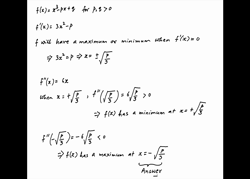 f(x) = x³ - px + q for p, q > 0
f'(x) = 3x² - p
f will have a maximum or minimum when f'(x) = 0
⇒ 3x² = p ⇒ x = ± √(p/3)
f''(x) = 6x
When x = + √(p/3), f''(√(p/3)) = 6√(p/3) > 0
⇒ f(x) has a minimum at x = + √(p/3)
f''(-√(p/3)) = -6√(p/3) < 0
⇒ f(x) has a maximum at x = - √(p/3)
Answer